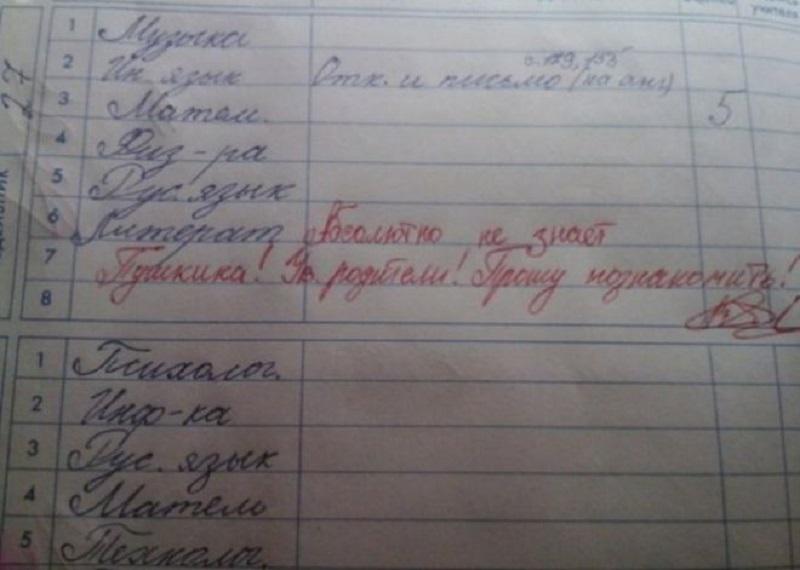 учителя
27
1 Музыка
с. 129, 155
2 Ин. язык Отк. и письмо (на анг)
3 Матем. 5
4 Физ-ра
5 Рус. язык
6 Литерат Абсолютно не знает
7 Пушкина! Ув. родители! Прошу познакомить!
8
1 Психолог.
2 Инф-ка
3 Рус. язык
4 Матем
5 Технолог.